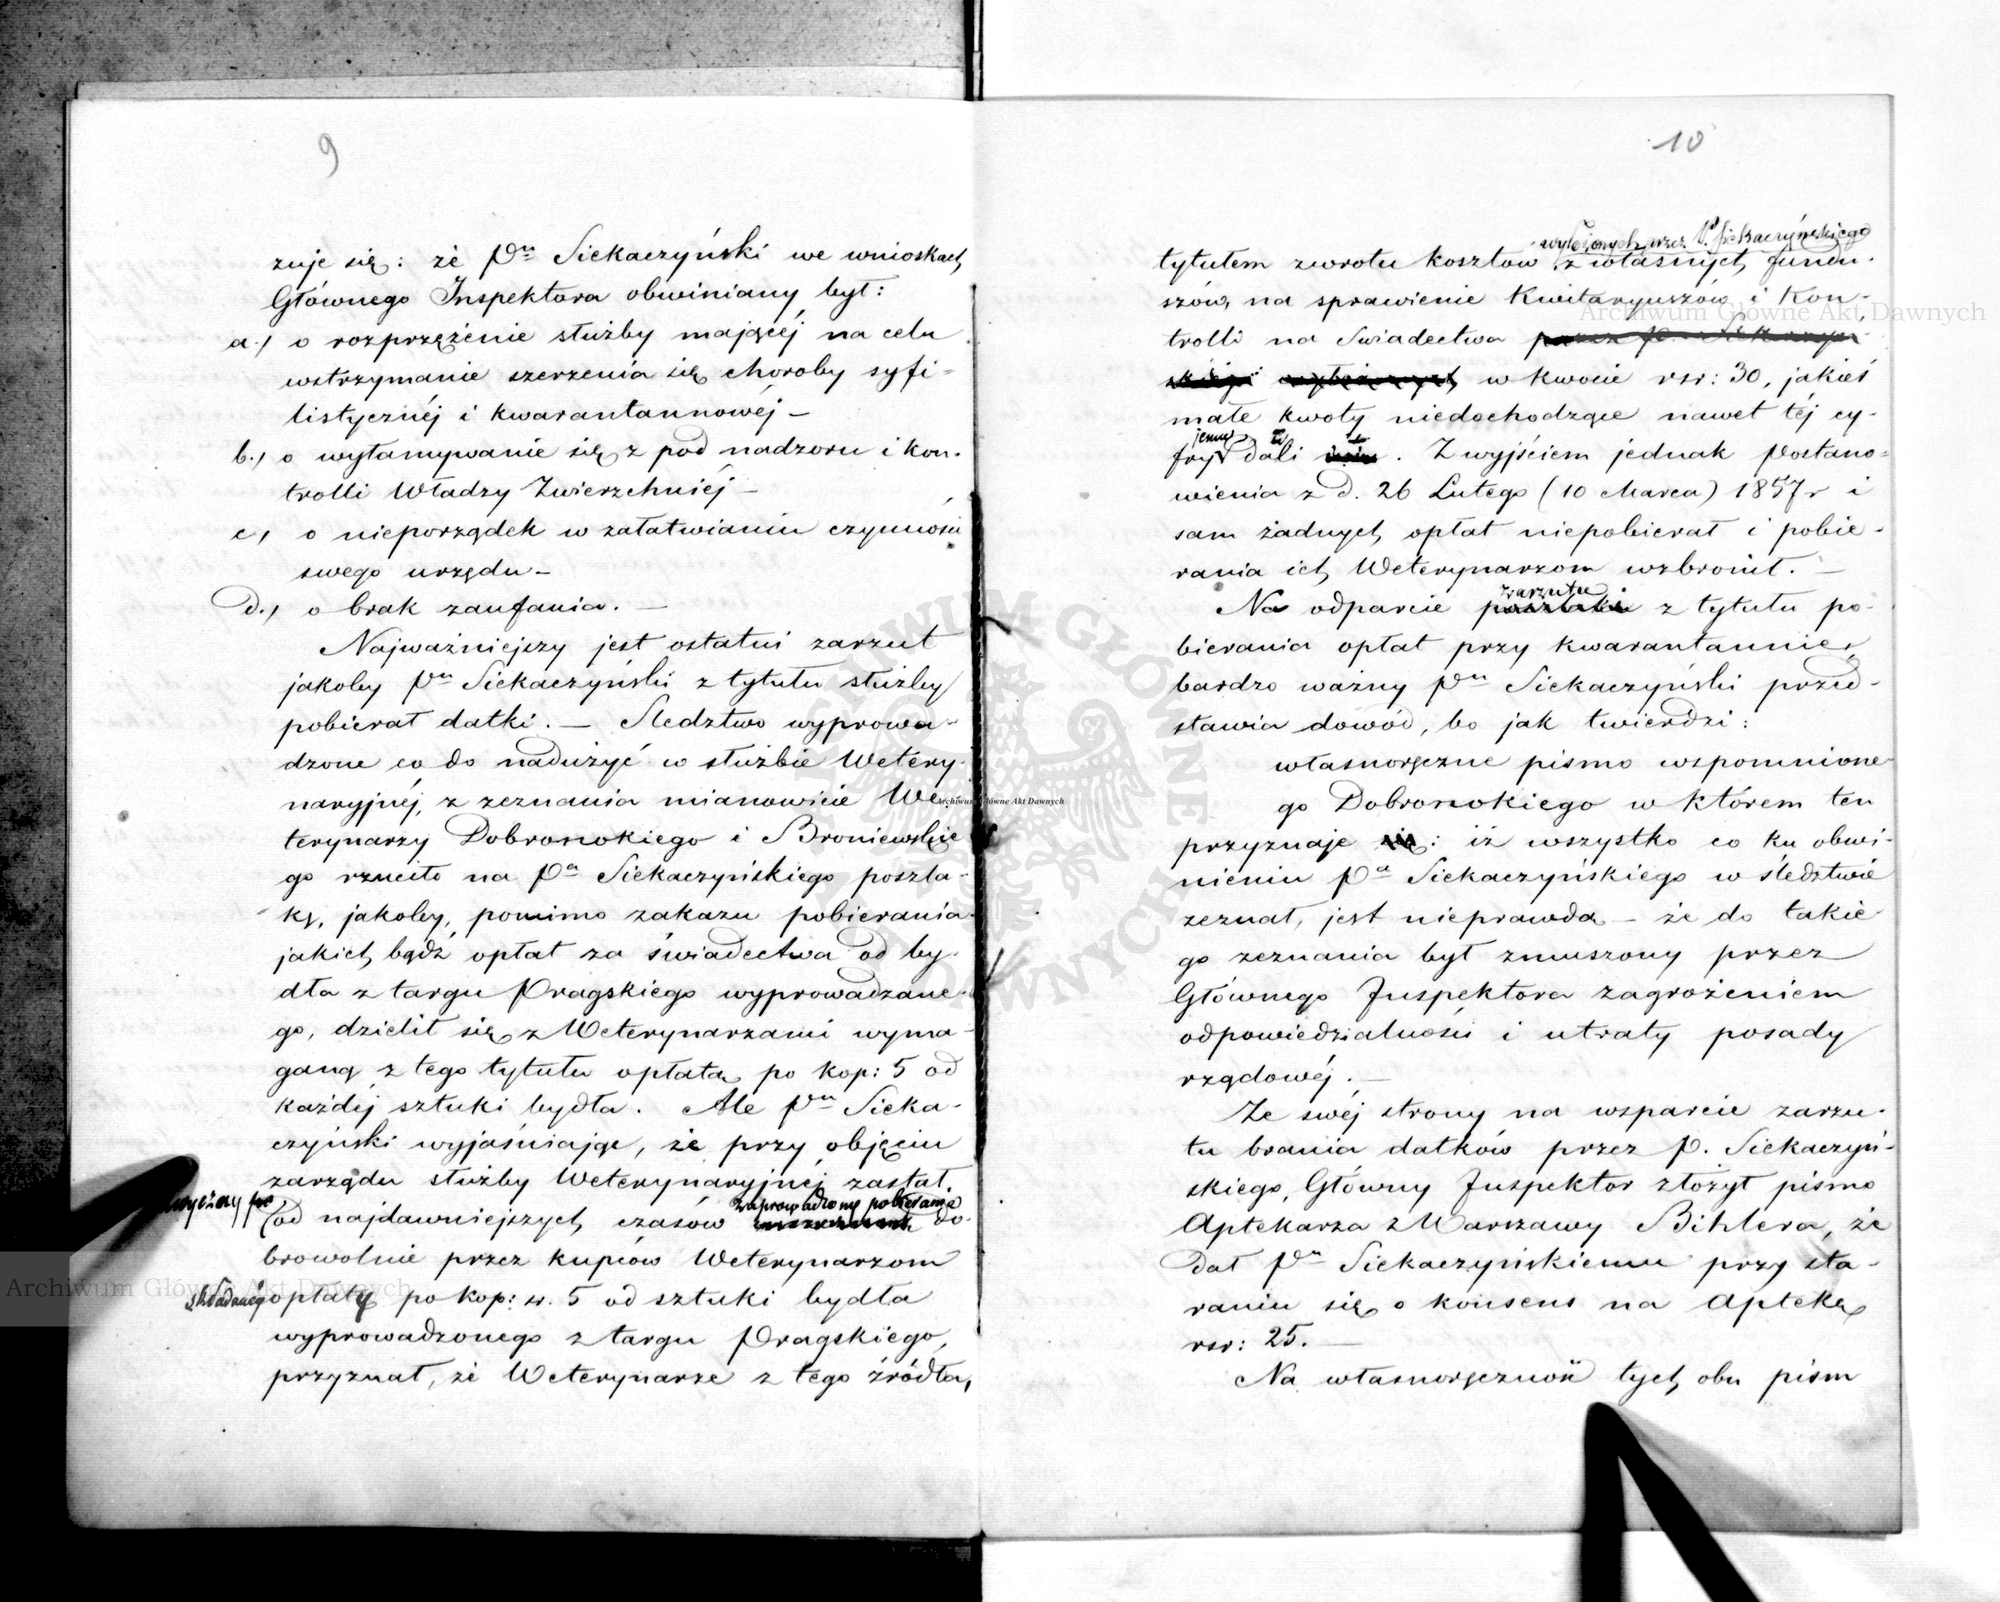 9
zuje się: że Pn Siekaczyński we wnioskach
Głównego Inspektora obwiniany był:
a.) o rozprzężenie służby mającéj na celu
wstrzymanie szerzenia się choroby syfi-
listycznéj i kwarantannowéj –
b.) o wyłamywanie się z pod nadzoru i kon-
trolli Władzy Zwierzchniéj –
c.) o nieporządek w załatwianiu czynności
swego urzędu –
d.) o brak zaufania. –
Najważniejszy jest ostatni zarzut
jakoby Pn Siekaczyński z tytułu służby
pobierał datki. – Śledztwo wyprowa-
dzone co do nadużyć w służbie Wetery-
naryjnéj, z zeznania mianowicie We-
terynarzy Dobronokiego i Broniewskie
go rzuciło na Pa Siekaczyńskiego poszla-
kę, jakoby, pomimo zakazu pobierania
jakich bądź opłat za świadectwa od by-
dła z targu Pragskiego wyprowadzane-
go, dzielił się z Weterynarzami wyma-
ganą z tego tytułu opłatą po kop: 5 od
każdéj sztuki bydła. Ale Pn Sieka-
czyński wyjaśniając, że przy objęciu
zarządu służby Weterynaryjnéj zastał
zaprowadzony pobierania
od najdawniejszych czasów do-
browolnie przez kupców Weterynarzom
składanéj opłaty po kop: sr. 5 od sztuki bydła
wyprowadzonego z targu Pragskiego,
przyznał, że Weterynarze z tego źródła,
10
wyłożonych przez P. Siekaczyńskiego
tytułem zwrotu kosztów z własnych fundu-
szów, na sprawienie Kwitaryuszów i Kon-
trolli na Świadectwa przez P. Siekaczyń-
skiego wyłożonych w kwocie rsr: 30, jakieś
małe kwoty niedochodzące nawet téj cy-
jemu
fry dali . Z wyjściem jednak Postano-
wienia z d. 26 Lutego (10 Marca) 1857 r i
sam żadnych opłat niepobierał i pobie-
rania ich Weterynarzom wzbronił. –
zarzutu
Na odparcie poszlaki z tytułu po-
bierania opłat przy kwarantannie,
bardzo ważny Pn Siekaczyński przed-
stawia dowód, bo jak twierdzi:
własnoręczne pismo wspomnione-
go Dobronokiego w którem ten
przyznaje się: iż wszystko co ku obwi-
nieniu Pa Siekaczyńskiego w śledztwie
zeznał, jest nieprawdą – że do takie-
go zeznania był zmuszony przez
Głównego Inspektora zagrożeniem
odpowiedzialności i utraty posady
rządowéj. –
Ze swéj strony na wsparcie zarzu-
tu brania datków przez P. Siekaczyń-
skiego, Główny Inspektor złożył pismo
Aptekarza z Warszawy Bihlera, że
dał Pn Siekaczyńskiemu przy sta-
raniu się o konsens na Aptekę
rsr: 25. –
Na własnoręczność tych obu pism
Archiwum Główne Akt Dawnych
Archiwum Główne Akt Dawnych
Archiwum Główne Akt Dawnych